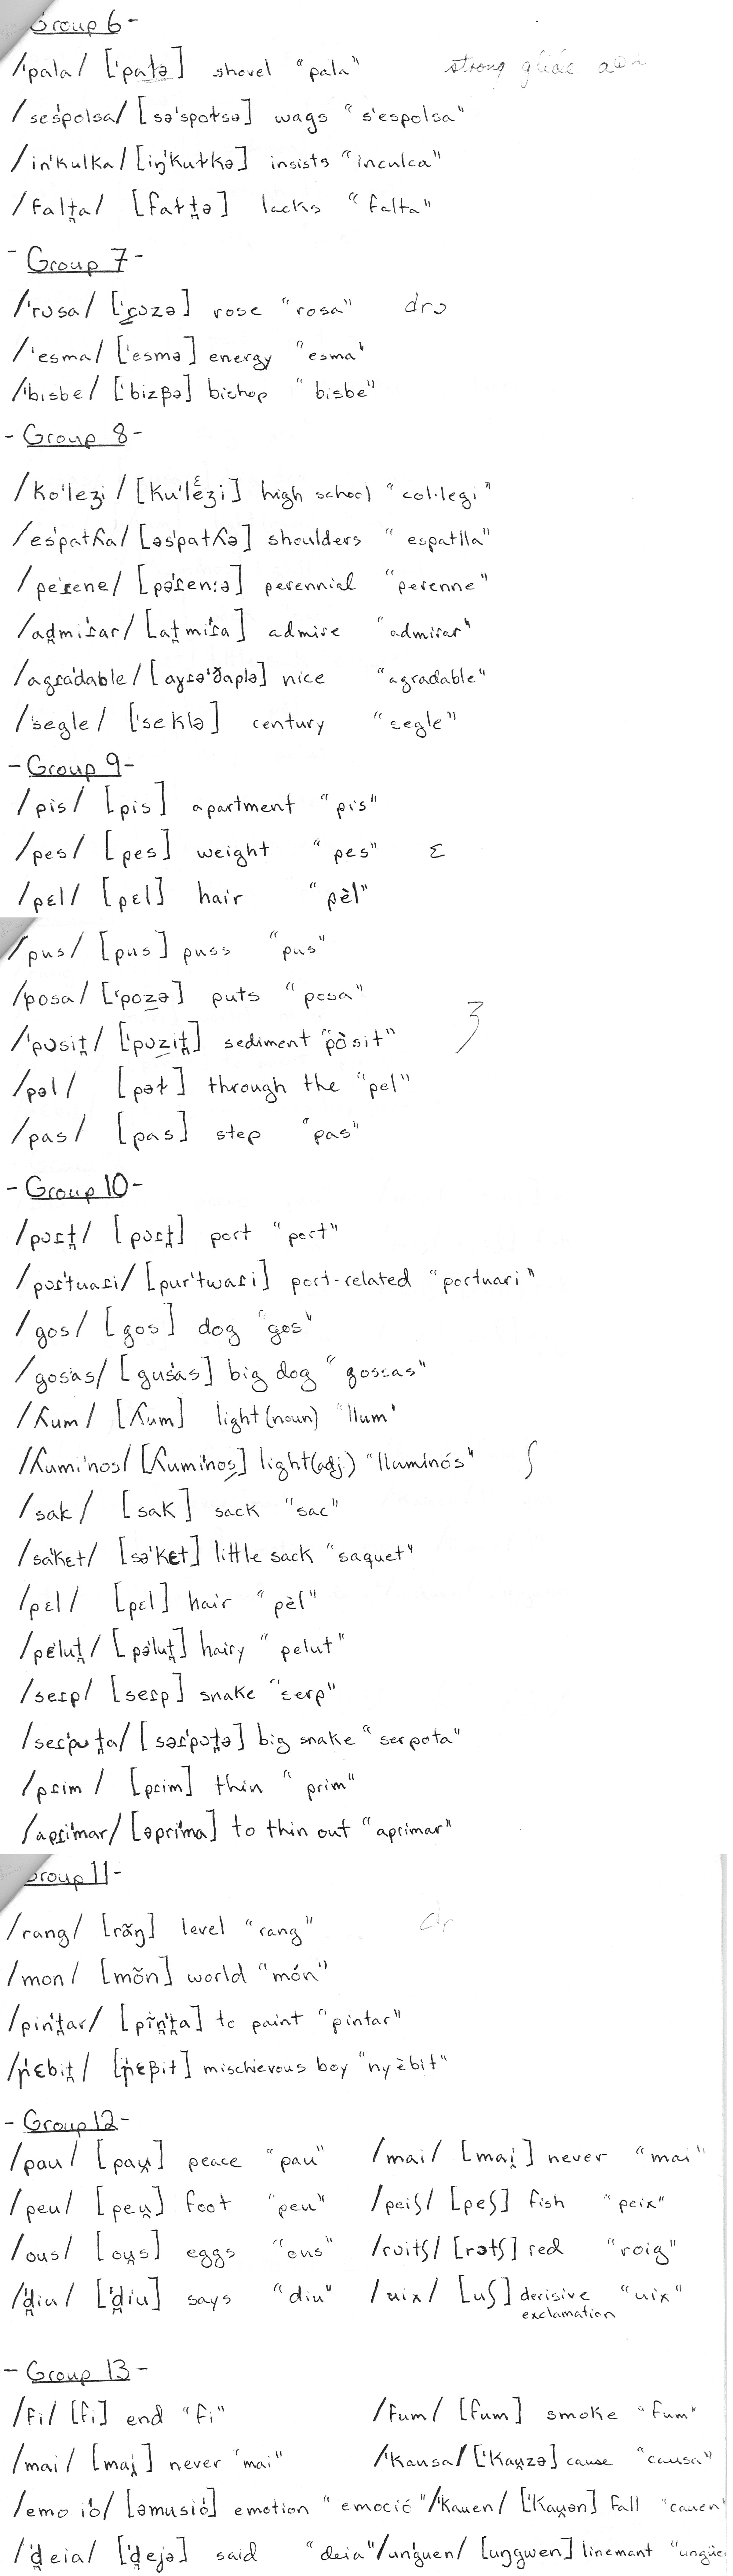 Group 6 -
/ˈpala/ [ˈpaɫə] shovel "pala" strong glide
/sesˈpolsa/ [səˈspoɫsə] wags "s'espolsa"
/inˈkulka/ [iŋˈkuɫkə] insists "inculca"
/falt̪a/ [faɫt̪ə] lacks "falta"
- Group 7 -
/ˈrɔsa/ [ˈrɔzə] rose "rosa" drɔ
/ˈesma/ [ˈesmə] energy "esma"
/ˈbisbe/ [ˈbizβə] bishop "bisbe"
- Group 8 -
/koˈleʒi/ [kuˈlɛʒi] high school "col·legi"
/esˈpatʎa/ [əsˈpatʎə] shoulders "espatlla"
/peˈɾene/ [pəˈɾenːə] perennial "perenne"
/ad̪miˈɾar/ [at̪miˈɾa] admire "admirar"
/agɾaˈdable/ [aɣɾəˈðaplə] nice "agradable"
/ˈsegle/ [ˈseklə] century "segle"
- Group 9 -
/pis/ [pis] apartment "pis"
/pes/ [pes] weight "pes" ɛ
/pɛl/ [pɛl] hair "pèl"
/pus/ [pus] puss "pus"
/posa/ [ˈpozə] puts "posa"
/ˈpɔsit̪/ [ˈpɔzit̪] sediment "pòsit" ʒ
/pəl/ [pəɫ] through the "pel"
/pas/ [pas] step "pas"
- Group 10 -
/pɔɾt̪/ [pɔɾt̪] port "port"
/poɾˈtuaɾi/ [puɾˈtwaɾi] port-related "portuari"
/gos/ [gos] dog "gos"
/gosˈas/ [gusˈas] big dog "gossas"
/ʎum/ [ʎum] light (noun) "llum"
/ʎumiˈnos/ [ʎumiˈnos] light (adj.) "lluminós" ʃ
/sak/ [sak] sack "sac"
/saˈkɛt/ [səˈkɛt] little sack "saquet"
/pɛl/ [pɛl] hair "pèl"
/pɛˈlut̪/ [pəˈlut̪] hairy "pelut"
/seɾp/ [seɾp] snake "serp"
/seɾˈpɔt̪a/ [səɾˈpɔt̪ə] big snake "serpota"
/pɾim/ [pɾim] thin "prim"
/apɾiˈmar/ [əpɾiˈma] to thin out "aprimar"
Group 11 -
/rang/ [rãŋ] level "rang" dr
/mon/ [mõn] world "món"
/pinˈt̪ar/ [pĩnˈt̪a] to paint "pintar"
/ˈɲɛbit̪/ [ˈɲɛβit] mischievous boy "nyèbit"
- Group 12 -
/pau/ [pau̯] peace "pau" /mai/ [mai̯] never "mai"
/peu/ [peu̯] foot "peu" /peiʃ/ [peʃ] fish "peix"
/ous/ [ou̯s] eggs "ous" /roitʃ/ [rɔtʃ] red "roig"
/ˈd̪iu/ [ˈd̪iu] says "diu" /uix/ [uʃ] derisive exclamation "uix"
- Group 13 -
/fi/ [fi] end "fi" /fum/ [fum] smoke "fum"
/mai/ [mai̯] never "mai" /ˈkausa/ [ˈkau̯zə] cause "causa"
/emo iˈo/ [əmusiˈo] emotion "emoció" /ˈkauen/ [ˈkau̯ən] fall "cauen"
/ˈd̪eia/ [ˈd̪ejə] said "deia" /unˈguen/ [uŋgwen] linemant "ungüe